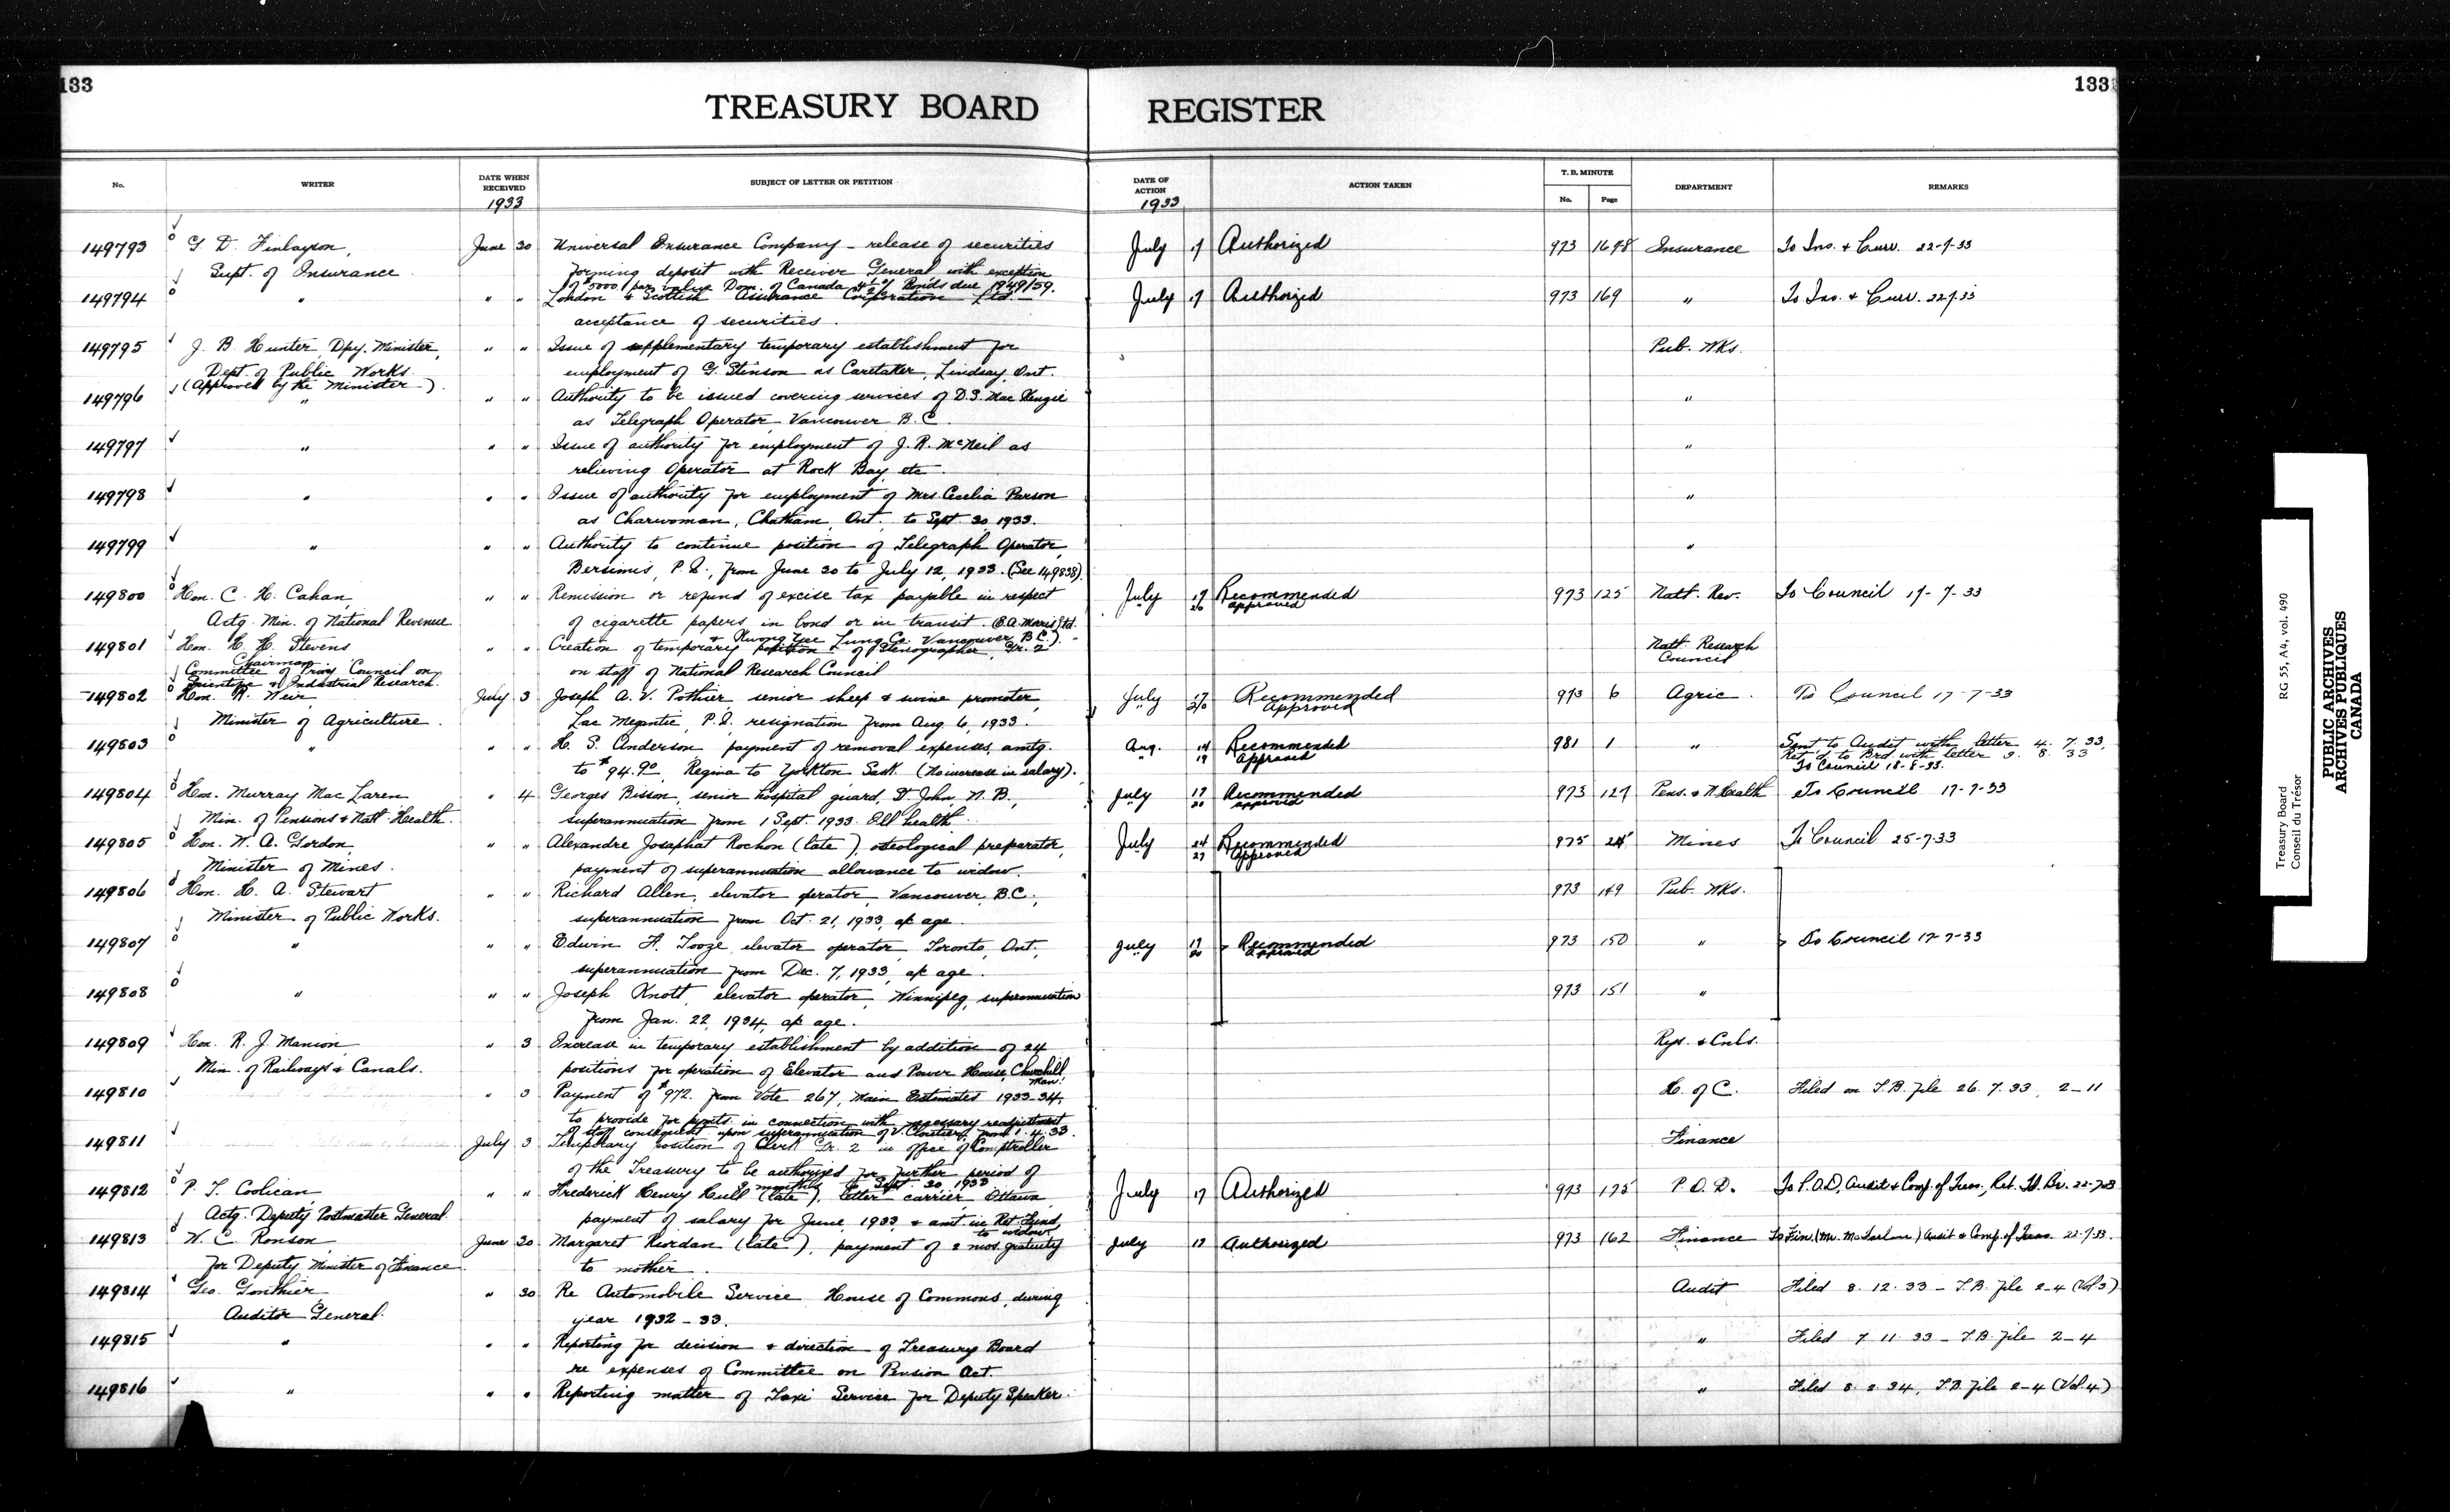 133
133
TREASURY BOARD REGISTER
No.
WRITER
DATE WHEN RECEIVED
1933
SUBJECT OF LETTER OR PETITION
DATE OF ACTION
1933
ACTION TAKEN
T. B. MINUTE
No.
Page
DEPARTMENT
REMARKS
149793 G D. Finlayson, June 30 Universal Insurance Company - release of securities July 17 Authorized 973 167-8 Insurance To Ins. & Curr. 22-7-33
Supt. of Insurance forming deposit with Receiver General with exception
of $5000 par value Dom. of Canada 4½% Bonds due 1949/59.
149794 " " " London & Scottish Assurance Corporation Ltd. - July 17 Authorized 973 169 " To Ins. & Curr. 22-7-33
acceptance of securities.
149795 J. B. Hunter, Dpy. Minister, " " Issue of supplementary temporary establishment for Pub. Wks.
Dept. of Public Works employment of G. Stinson as Caretaker, Lindsay, Ont.
(Approved by the Minister)
149796 " " " Authority to be issued covering services of D.S. MacKenzie "
as Telegraph Operator, Vancouver B.C.
149797 " " " Issue of authority for employment of J. R. McNeil as "
relieving Operator at Rock Bay, etc.
149798 " " " Issue of authority for employment of Mrs. Cecelia Parson "
as Charwoman, Chatham, Ont., to Sept 30, 1933.
149799 " " " Authority to continue position of Telegraph Operator, "
Bersimis, P.Q., from June 30 to July 12, 1933. (See 149838).
149800 Hon. C. H. Cahan, " " Remission or refund of excise tax payable in respect July 17 Recommended 973 125 Natl. Rev. To Council 17-7-33
20 approved
Actg. Min. of National Revenue of cigarette papers in bond or in transit. (E.A. Morris Ltd.
& Kwong Yee Lung Co. Vancouver, B.C.).
149801 Hon. H. H. Stevens " " Creation of temporary position of Stenographer, Gr. 2 Natl. Research Council
Chairman
Committee of Privy Council on on staff of National Research Council
Scientific & Industrial Research.
149802 Hon. R. Weir, July 3 Joseph A. V. Pothier, senior sheep & swine promoter, July 17 Recommended 973 6 Agric. To Council 17-7-33
20 Approved
Minister of Agriculture. Lac Megantic, P.Q. resignation from Aug. 6, 1933.
149803 " " " H. S. Anderson, payment of removal expenses, amtg. Aug. 14 Recommended 981 1 " Sent to Audit with letter 4. 7. 33,
19 Approved Ret'd to Brd with letter 3. 8. 33
to $94.90, Regina to Yorkton Sask. (No increase in salary). To Council 18-8-33.
149804 Hon. Murray MacLaren " 4 Georges Bisson, senior hospital guard, St. John, N.B., July 17 Recommended 973 127 Pens. & N Health To Council 17-7-33
20 approved
Min. of Pensions & Natl. Health. superannuation from 1 Sept. 1933. Ill health
149805 Hon. W. A. Gordon, " " Alexandre Josaphat Rochon (late), osteological preparator, July 24 Recommended 975 24 Mines To Council 25-7-33
27 Approved
Minister of Mines. payment of superannuation allowance to widow.
149806 Hon. H. A. Stewart " " Richard Allen, elevator operator, Vancouver, B.C., 973 149 Pub. Wks.
Minister of Public Works. superannuation from Oct. 21, 1933, a/c age.
149807 " " " Edwin F. Tooze, elevator operator, Toronto, Ont., July 17 Recommended 973 150 " To Council 17-7-33
20 approved
superannuation from Dec. 7, 1933, a/c age.
149808 " " " Joseph Knott, elevator operator, Winnipeg, superannuation 973 151 "
from Jan. 22, 1934, a/c age.
149809 Hon. R. J. Manion, " 3 Increase in temporary establishment by addition of 24 Rys. & Cnls.
Min. of Railways & Canals. positions for operation of Elevator and Power House, Churchill, Man.
149810 " 3 Payment of $972. from Vote 267, Main Estimates 1933-34, H. of C. Filed on T.B. file 26. 7. 33, 2-11
to provide for pymts. in connection with necessary readjustment
of staff consequent upon superannuation of V. Cloutier, from 1. 4. 33.
149811 July 3 Temporary position of Clerk Gr. 2 in office of Comptroller Finance
of the Treasury to be authorized for further period of
3 months, to Sept. 30, 1933
149812 P. T. Coolican, " " Frederick Henry Hull (late), letter carrier, Ottawa July 17 Authorized 973 175 P. O. D. To P.O.D., Audit & Comp. of Treas., Ret. Fd. Br. 22-7-33
Actg. Deputy Postmaster General payment of salary for June, 1933, & amt in Ret. Fund,
to widow
149813 W. C. Ronson, June 30 Margaret Riordan (late), payment of 2 mos. gratuity July 17 Authorized 973 162 Finance To Fin. (Mr. McFarlane) Audit & Comp. of Treas. 22-7-33.
for Deputy Minister of Finance to mother.
149814 Geo. Gonthier, " 30 Re Automobile Service House of Commons, during Audit Filed 8. 12. 33 - T.B. file 2-4 (Vol 3)
Auditor General. year 1932-33.
149815 " " " Reporting for decision & direction of Treasury Board " Filed 7. 11. 33 - T.B. file 2-4
re expenses of Committee on Pension Act.
149816 " " " Reporting matter of Taxi Service for Deputy Speaker. " Filed 8. 2. 34, T.B. file 2-4 (Vol. 4)
Treasury Board RG 55, A4, vol. 490
Conseil du Trésor
PUBLIC ARCHIVES
ARCHIVES PUBLIQUES
CANADA